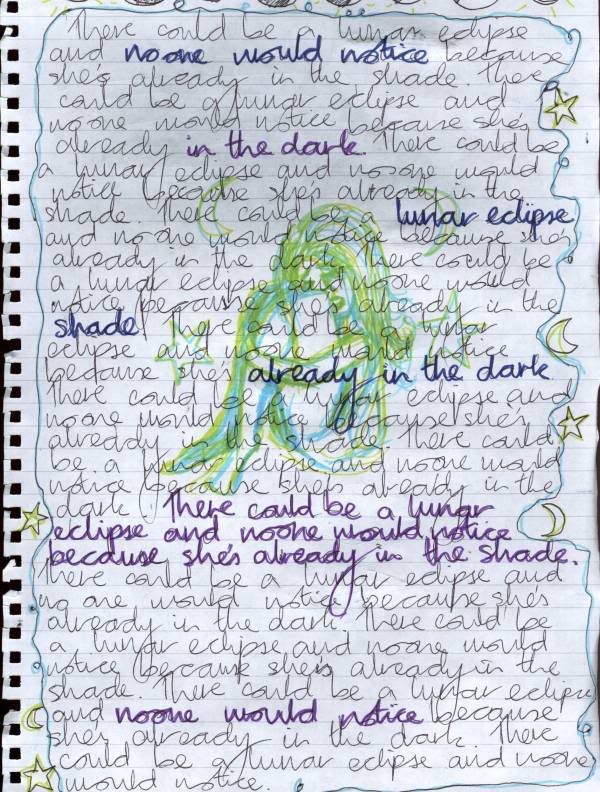 There could be a lunar eclipse
and noone would notice because
she's already in the shade. There
could be a lunar eclipse and
noone would notice because she's
already in the dark. There could be
a lunar eclipse and noone would
notice because she's already in the
shade. There could be a lunar eclipse
and noone would notice because she's
already in the dark. There could be
a lunar eclipse and noone would
notice because she's already in the
shade. There could be a lunar
eclipse and noone would notice
because she's already in the dark.
There could be a lunar eclipse and
noone would notice because she's
already in the shade. There could
be a lunar eclipse and noone would
notice because she's already in the
dark. There could be a lunar
eclipse and noone would notice
because she's already in the shade.
There could be a lunar eclipse and
no one would notice because she's
already in the dark. There could be
a lunar eclipse and noone would
notice because she's already in the
shade. There could be a lunar eclipse
and noone would notice because
she's already in the dark. There
could be a lunar eclipse and noone
would notice.